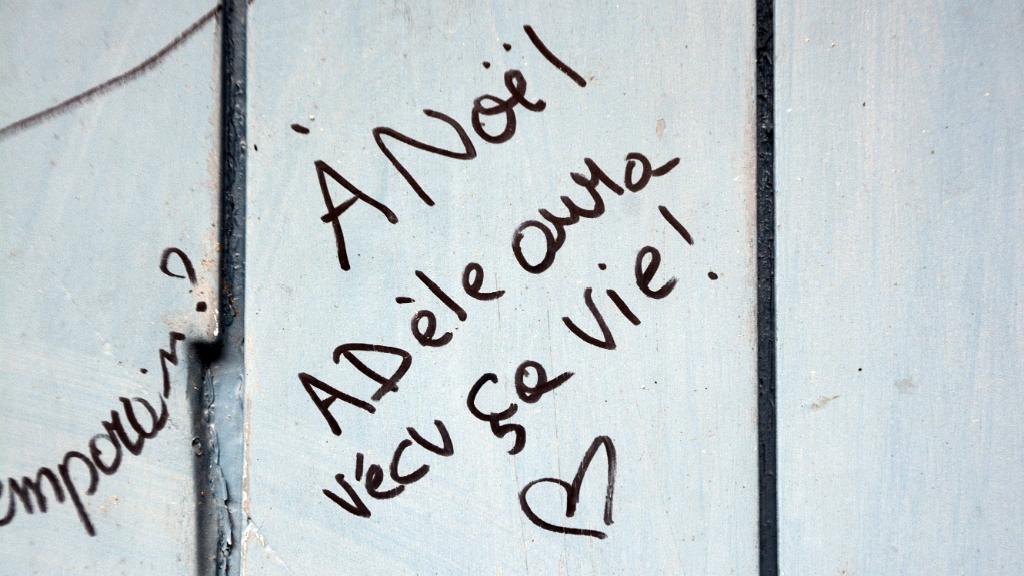 À Noël
ADèle aura
vécu ça vie!
emporain?